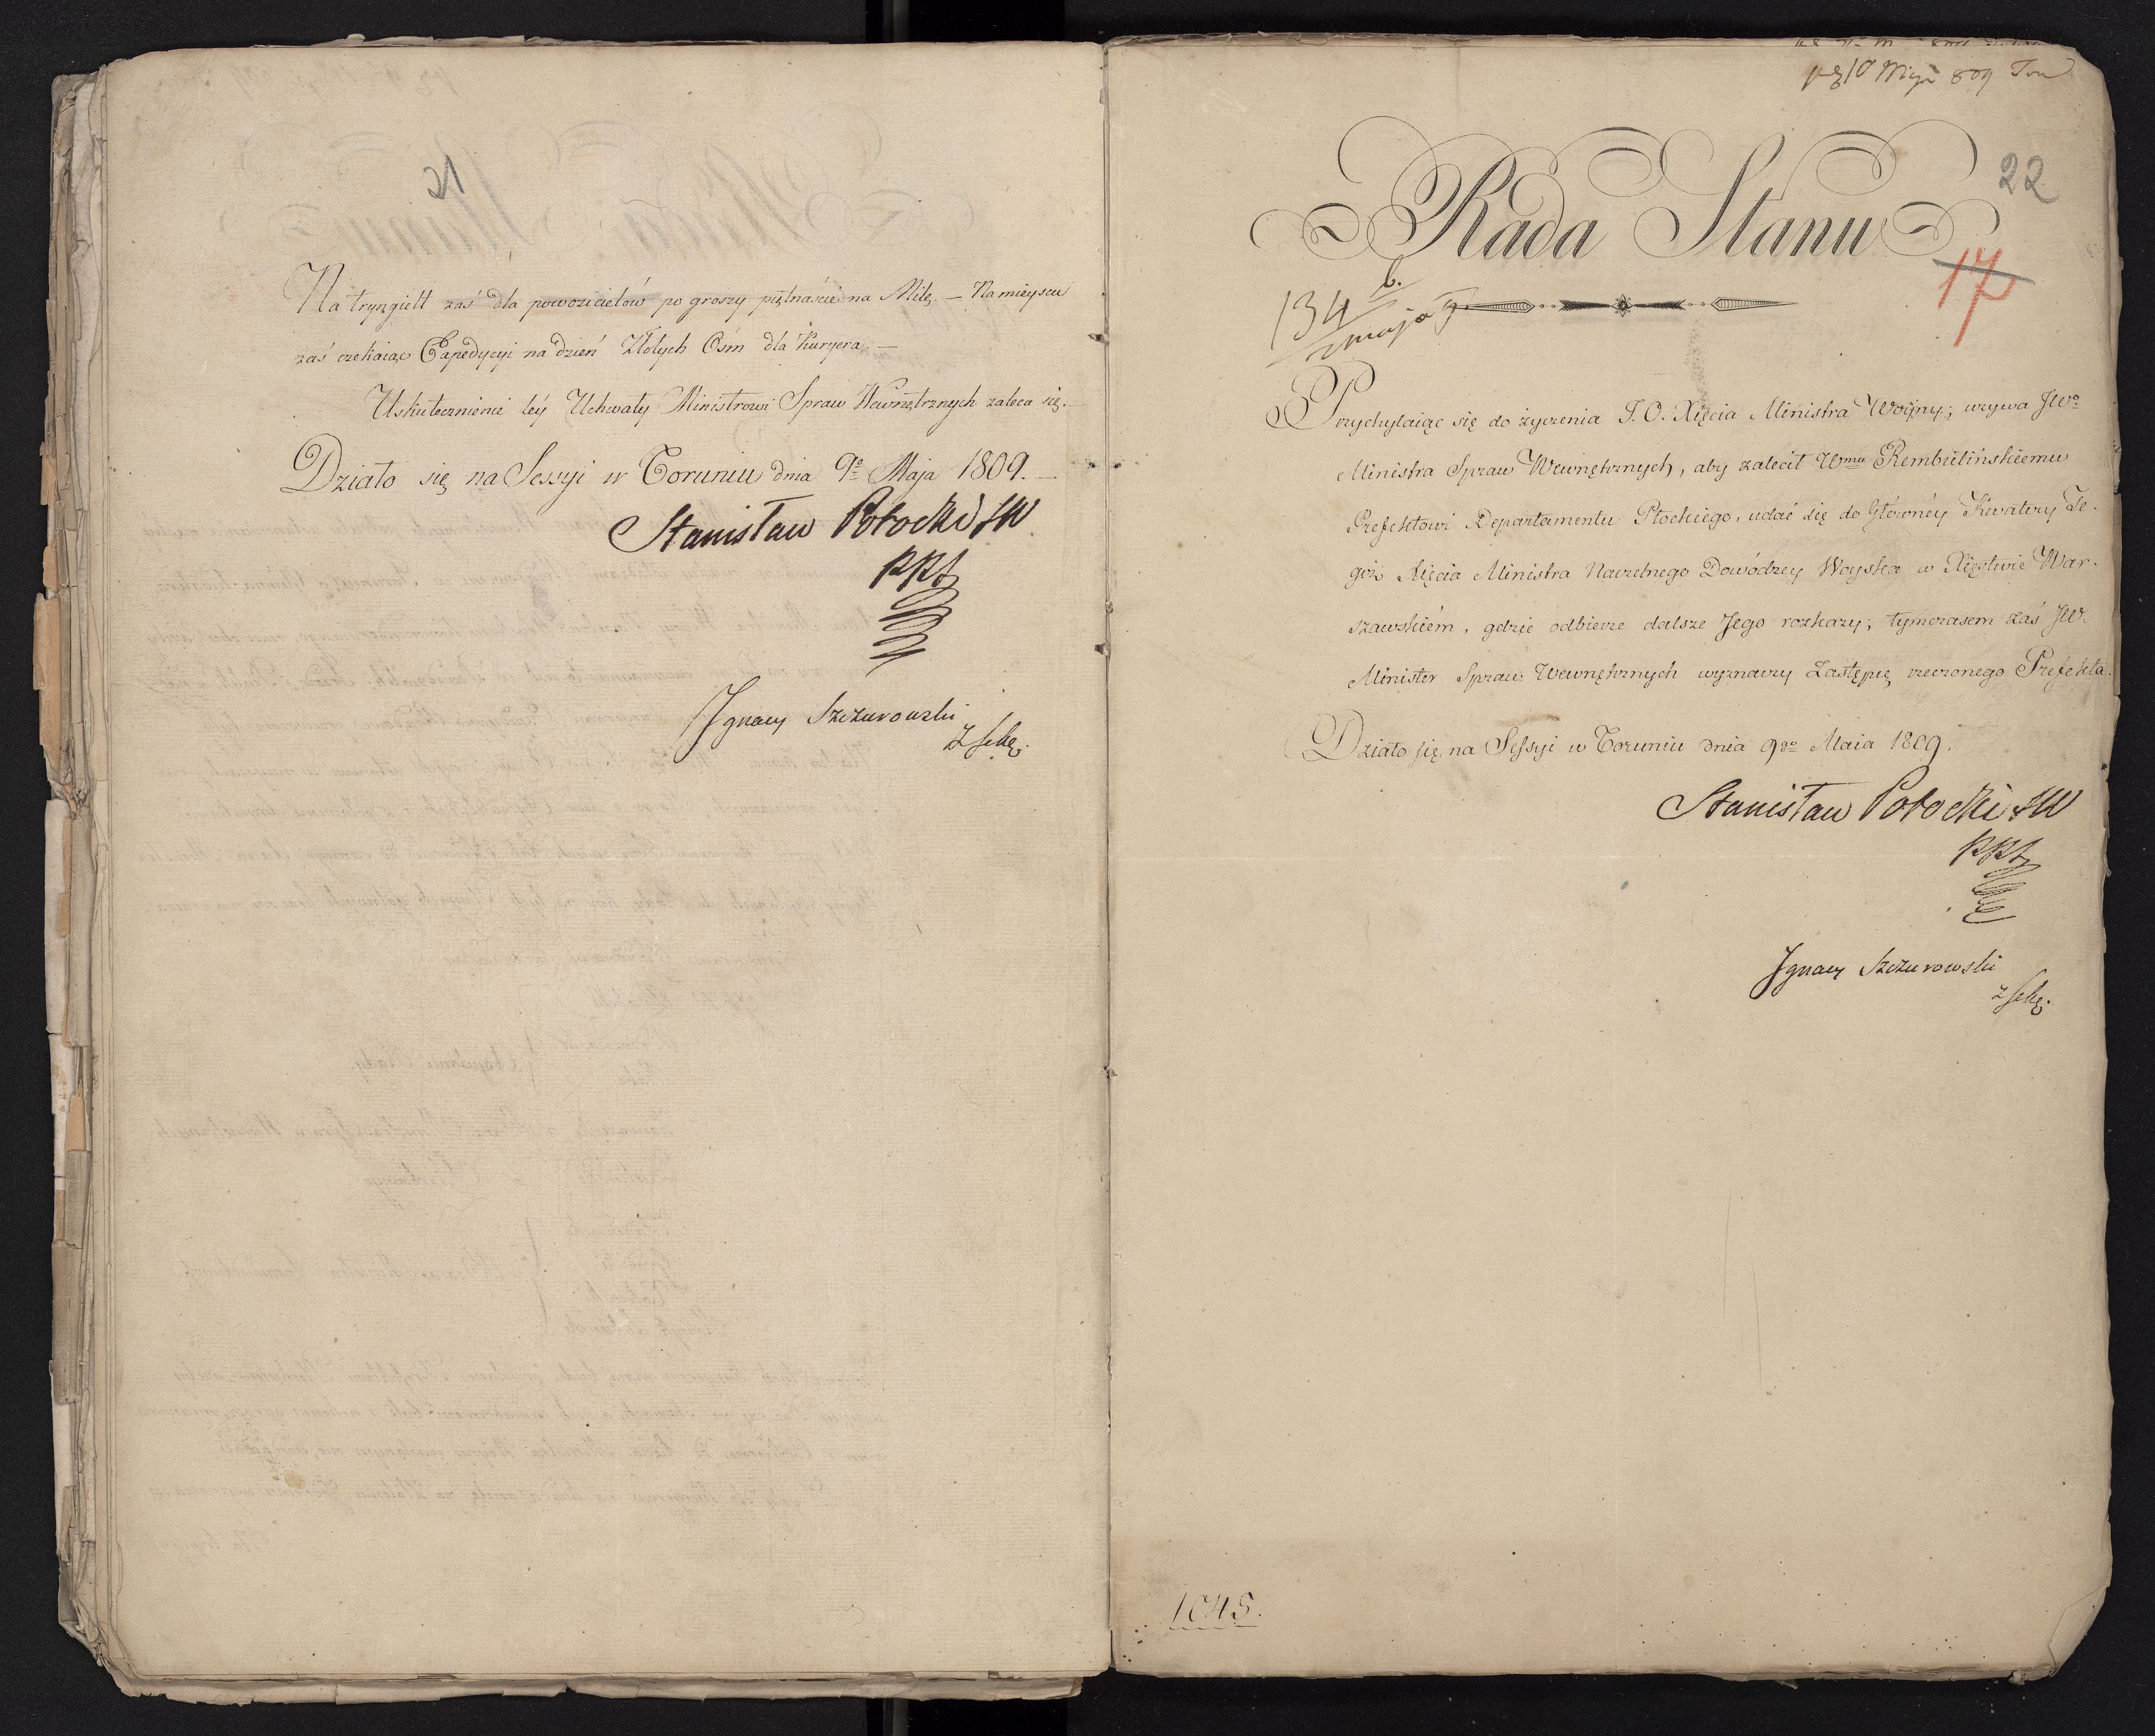 Na tryngielt zaś dla powozicielów po groszy piętnaście na Milę. — Na mieyscu
zaś czekaiąc Expedycyi na dzień Złotych Ośm dla Kuryera. —
Uskutecznienie téy Uchwały Ministrowi Spraw Wewnętrznych zaleca się.
Działo się na Sessyi w Toruniu dnia 9º Maja 1809. —
Stanisław Potocki SW
PRS
Ignacy Szczurowski
Z Sekr.
10 Maja 809
Rada Stanu
22
17
134 b.
maja 9
Przychylaiąc się do życzenia J. O. Xięcia Ministra Woyny; wzywa JWº
Ministra Spraw Wewnętrznych, aby zalecił Wmu Rembielińskiemu
Prefektowi Departamentu Płockiego, udać się do Głównéy Kwatery Te-
goż Xięcia Ministra Naczelnego Dowódzcy Woyska w Xięstwie War-
szawskiém, gdzie odbierze dalsze Jego rozkazy; tymczasem zaś JW.
Minister Spraw Wewnętrznych wyznaczy Zastępcę rzeczonego Prefekta.
Działo się na Sessyi w Toruniu dnia 9go Maia 1809.
Stanisław Potocki SW
PRS
Ignacy Szczurowski
Z Sekr.
1045.